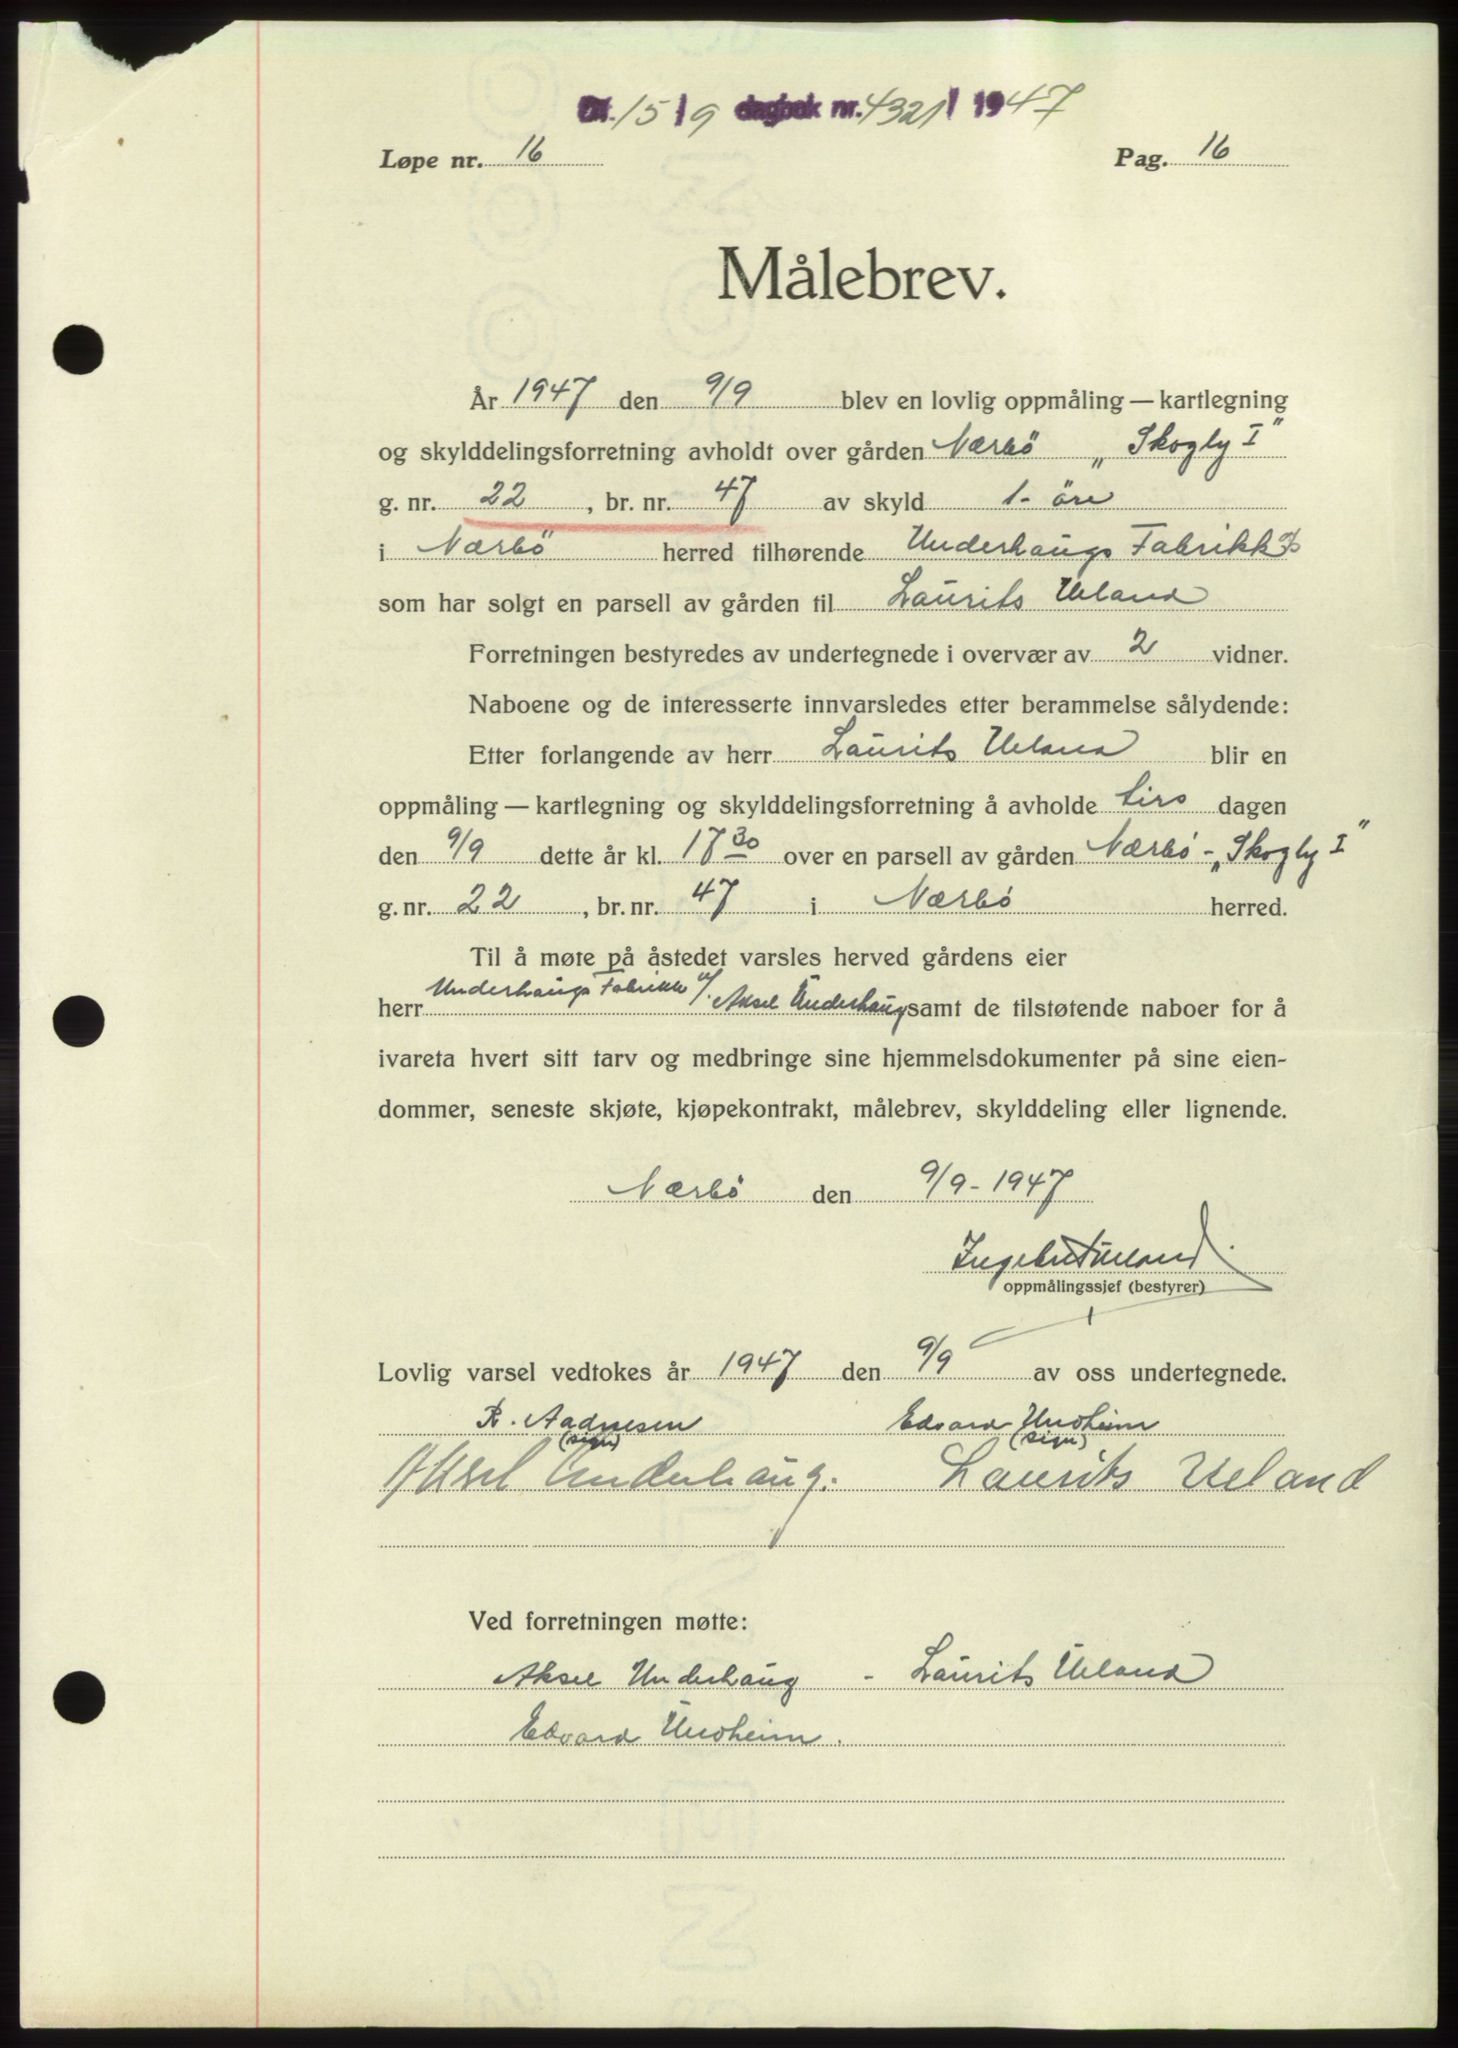 Dt. 15/9 dagbok nr. 4321 / 1947
Løpe nr. 16 Pag. 16
Målebrev.
År 1947 den 9/9 blev en lovlig oppmåling — kartlegning
og skylddelingsforretning avholdt over gården Nærbö „Skogly I"
g. nr. 22, br. nr. 47 av skyld 1- öre
i Nærbö herred tilhørende Underhaugs Fabrikk a/s
som har solgt en parsell av gården til Laurits Ueland
Forretningen bestyredes av undertegnede i overvær av 2 vidner.
Naboene og de interesserte innvarsledes etter berammelse sålydende:
Etter forlangende av herr Laurits Ueland blir en
oppmåling — kartlegning og skylddelingsforretning å avholde tirs dagen
den 9/9 dette år kl. 17 30 over en parsell av gården Nærbó - „Skogly I"
g. nr. 22, br. nr. 47 i Nærbó herred.
Til å møte på åstedet varsles herved gårdens eier
herr Underhaugs Fabrikk v/. Aksel Underhaug samt de tilstøtende naboer for å
ivareta hvert sitt tarv og medbringe sine hjemmelsdokumenter på sine eien-
dommer, seneste skjøte, kjøpekontrakt, målebrev, skylddeling eller lignende.
Nærbó den 9/9 - 1947
oppmålingssjef (bestyrer)
Lovlig varsel vedtokes år 1947 den 9/9 av oss undertegnede.
R. Aadnesen Edvard Undheim
(sign) (sign)
Aksel Underhaug. Laurits Ueland
Ved forretningen møtte:
Aksel Underhaug - Laurits Ueland
Edvard Undheim.